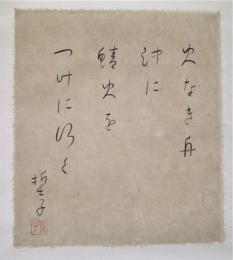 火なき舟
沖に
鯖火を
つけに行く
哲子